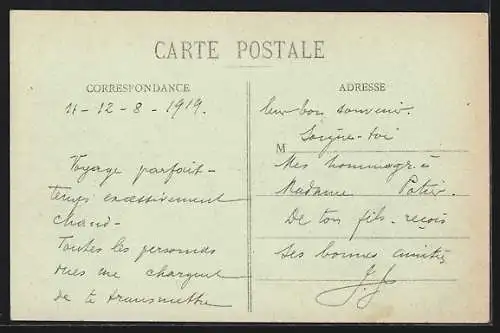 CARTE POSTALE
CORRESPONDANCE
11-12-8-1919.
Voyage parfait -
temps excessivement
chaud -
Toutes les personnes
vues me chargent
de te transmettre
ADRESSE
leur bon souvenir.
Soigne-toi
M
Mes hommages à
Madame
De ton fils. reçois
Ses bonnes amitiés